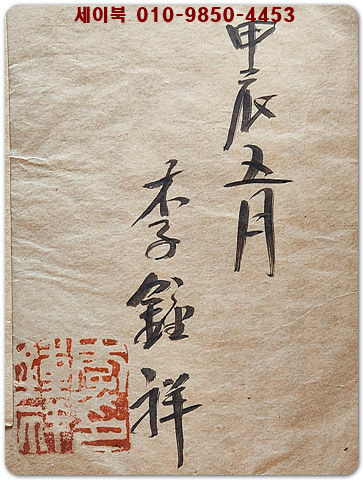 세이북 010-9850-4453
甲辰五月
李鍾祥